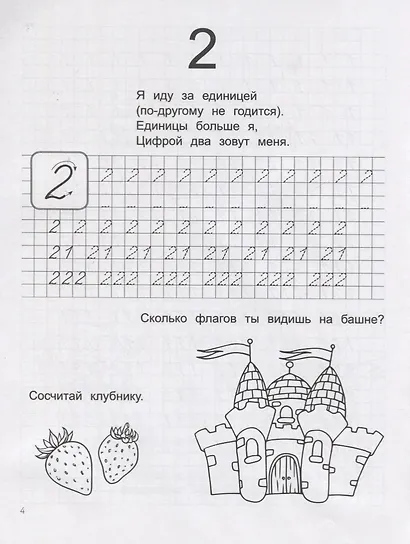 2
Я иду за единицей
(по-другому не годится).
Единицы больше я,
Цифрой два зовут меня.
2 2 2 2 2 2 2 2 2 2 2 2
2 2 2 2 2 2 2 2 2 2 2 2 2
21 21 21 21 21 21 21 21 21
222 222 222 222 222 222
Сколько флагов ты видишь на башне?
Сосчитай клубнику.
4